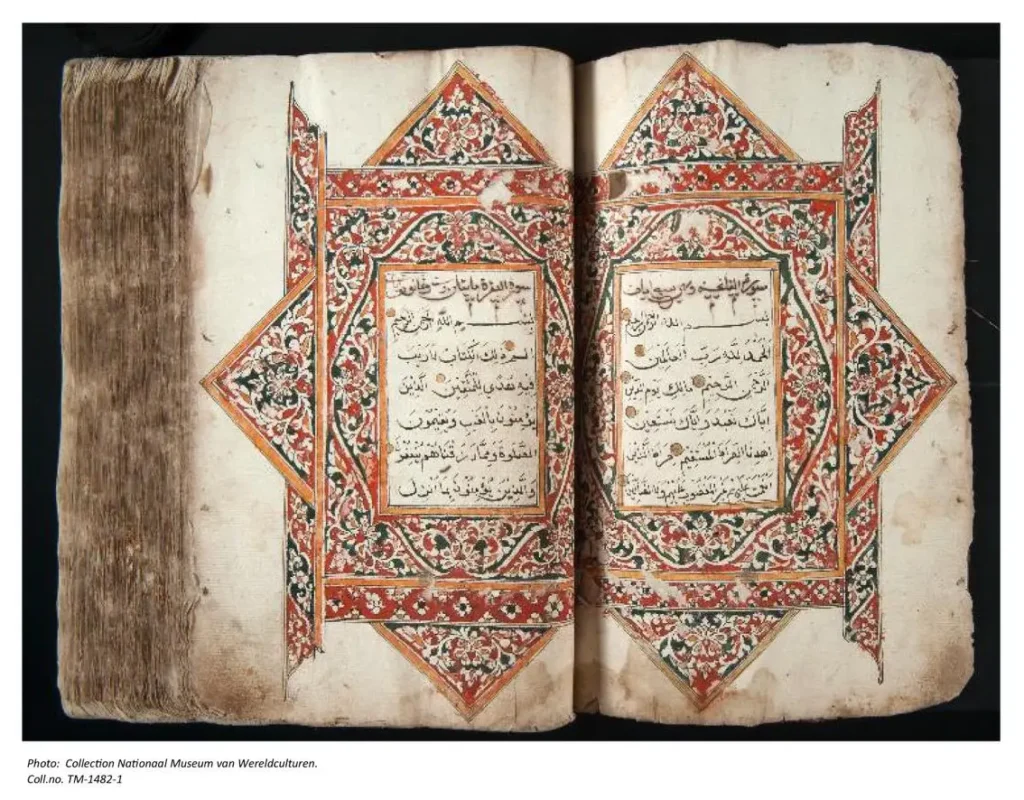 سورة الفاتحة وهي سبع ايات
بسم الله الرحمن الرحيم
الحمد لله رب العالمين
الرحمن الرحيم مالك يوم الدين
اياك نعبد واياك نستعين
اهدنا الصراط المستقيم صراط الذين
انعمت عليهم غير المغضوب عليهم ولا الضالين
سورة البقرة مايتان وست وثمانون
بسم الله الرحمن الرحيم
الم ذلك الكتاب لا ريب
فيه هدى للمتقين الذين
يؤمنون بالغيب ويقيمون
الصلوة ومما رزقناهم ينفقو
والذين يؤمنون بما انزل
Photo: Collection Nationaal Museum van Wereldculturen.
Coll.no. TM-1482-1